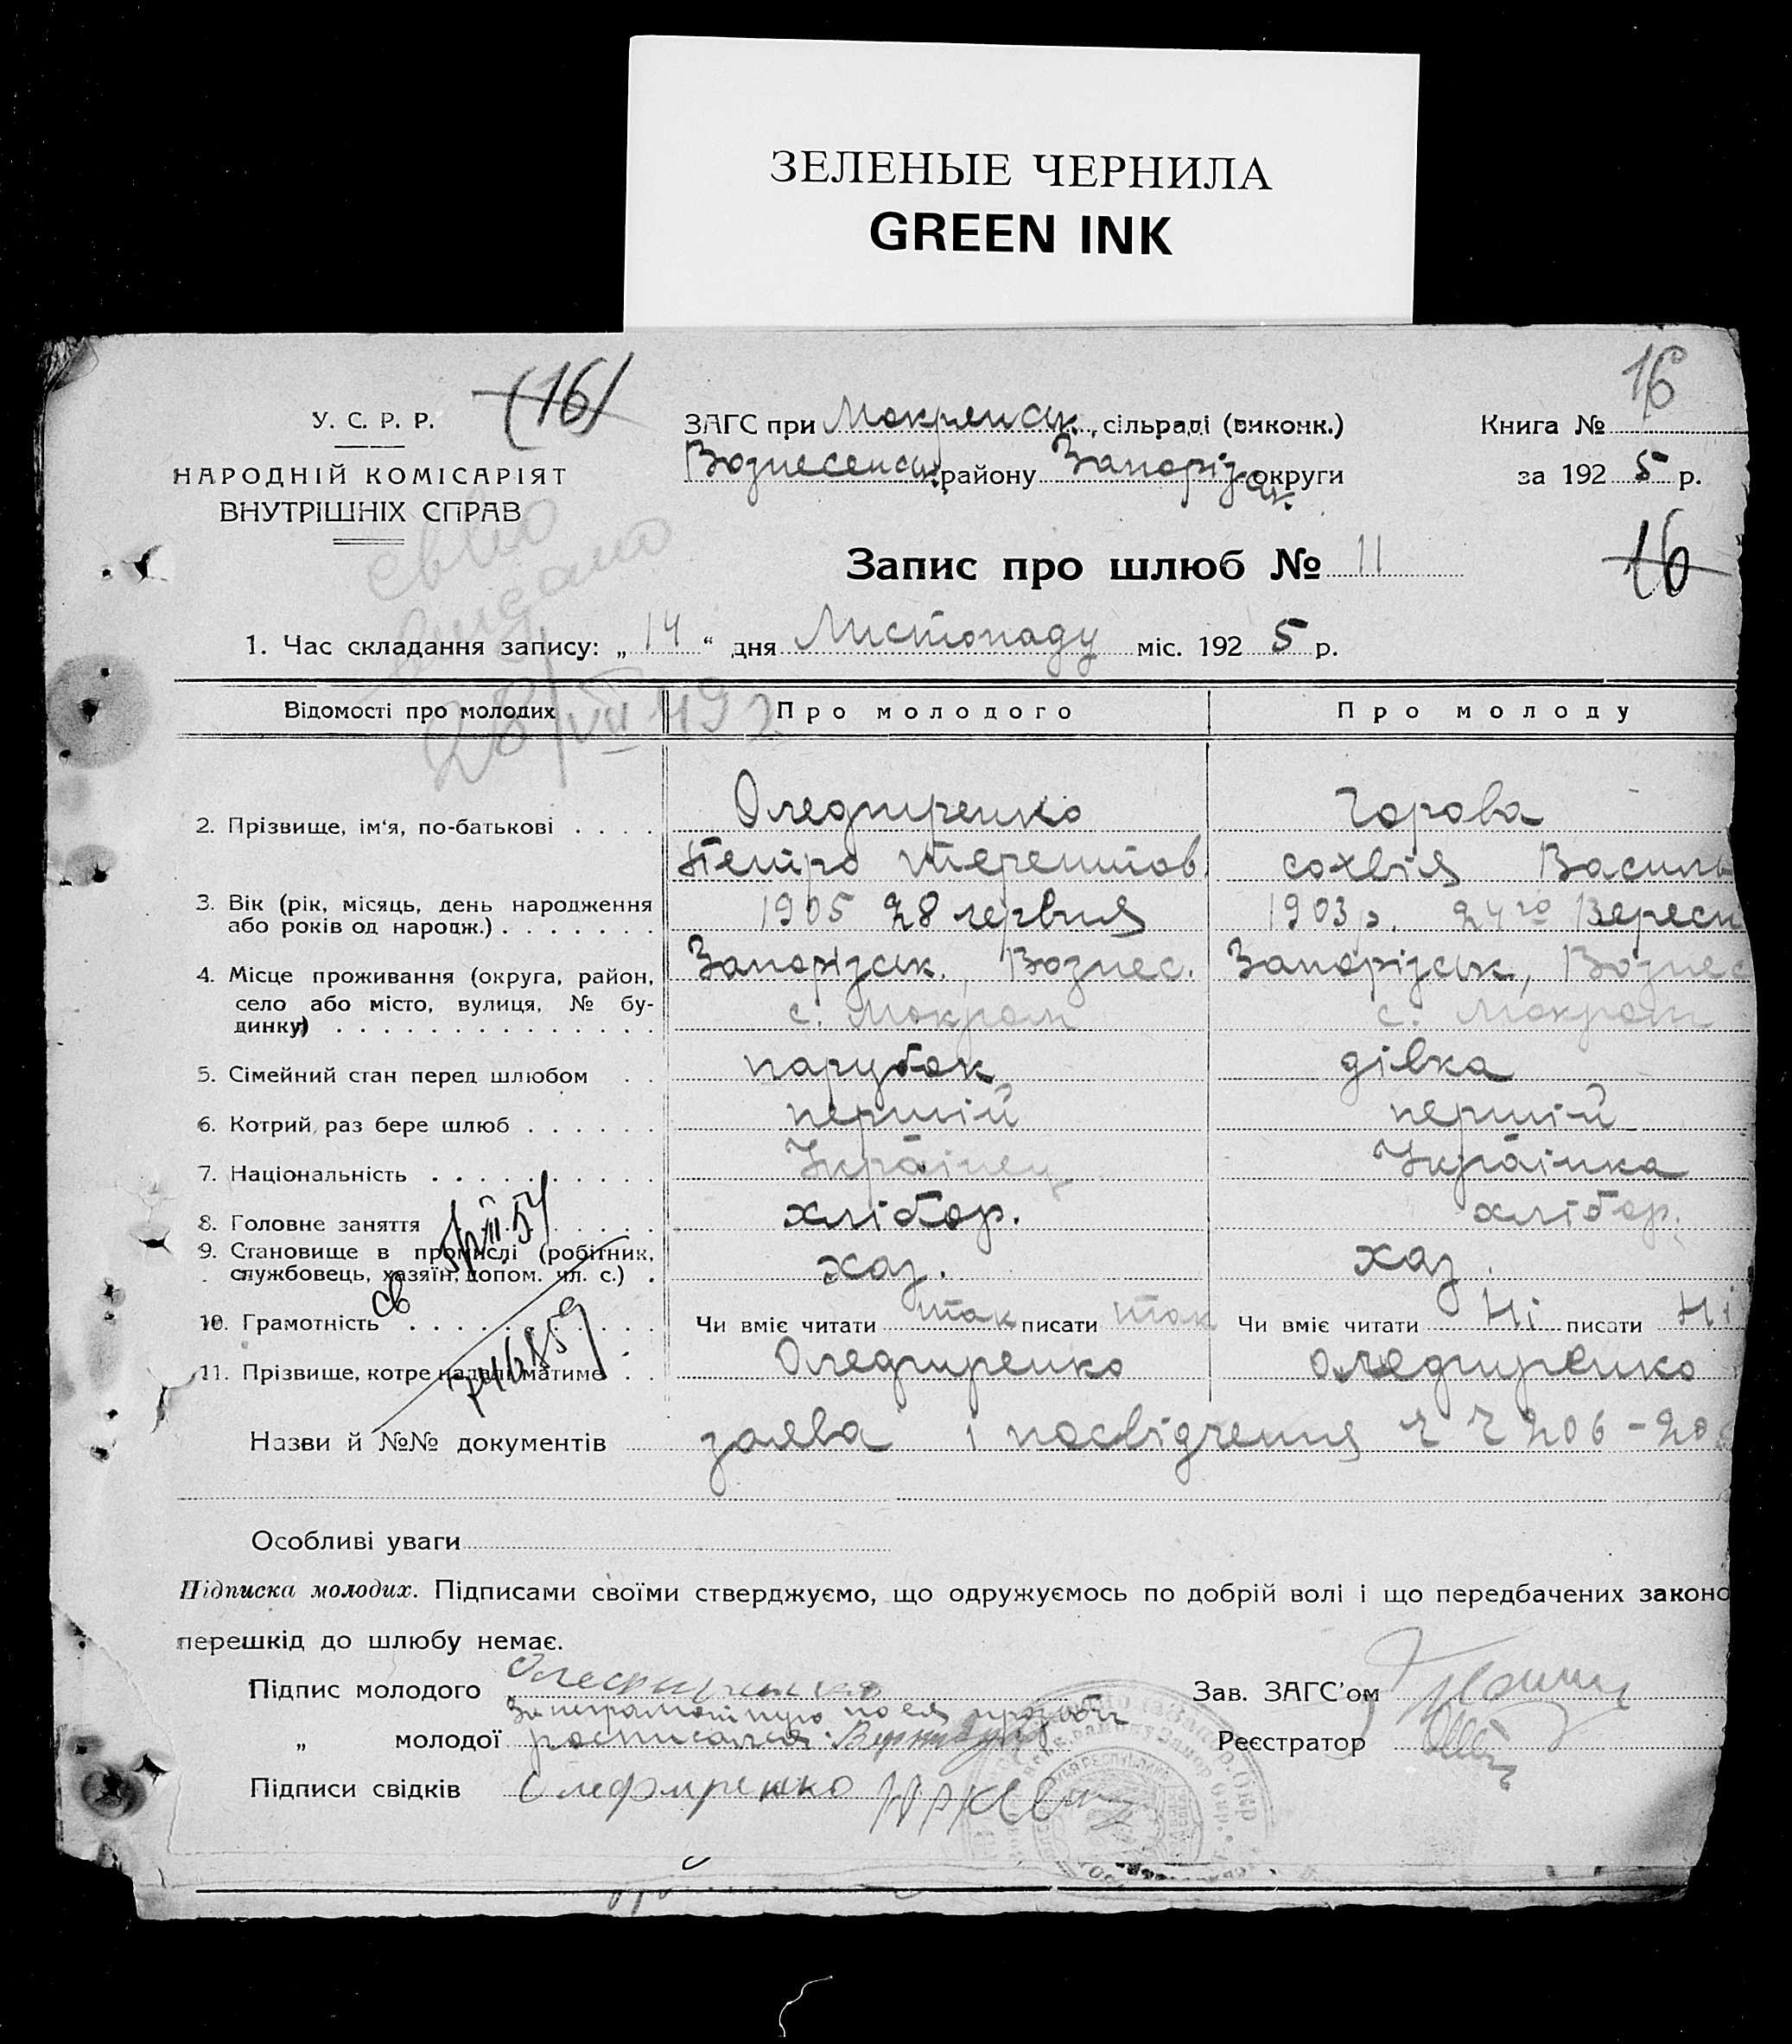 ЗЕЛЕНЫЕ ЧЕРНИЛА
GREEN INK
16
(16)
У. С. Р. Р.
НАРОДНІЙ КОМІСАРІЯТ
ВНУТРІШНІХ СПРАВ
ЗАГС при Мокрянськ. сільраді (виконк.)
Вознесенськ. району Запорізьк. округи
Книга №
за 192 5 р.
Запис про шлюб № 11
16
1. Час складання запису: „ 14 “ дня Листопаду міс. 192 5 р.
28/VII 49 р
Відомості про молодих Про молодого Про молоду
2. Прізвище, ім‘я, по-батькові . . . . Олефиренко Горова
Петро Терентов. сохвія Василь
3. Вік (рік, місяць, день народження 1905 28 червня 1903 р. 24го Вересн
або років од народж.) . . . . . . .
4. Місце проживання (округа, район, Запорізьк., Вознес. Запорізьк., Вознес
село або місто, вулиця, № бу- с. Мокром с. Мокром
динку) . . . . . . . . . . . . . .
5. Сімейний стан перед шлюбом . . парубок дівка
6. Котрий раз бере шлюб . . . . . . першій першій
7. Національність . . . . . . . . . . Українец Українка
8. Головне заняття . . . . . хлібор. хлібор.
9. Становище в промислі (робітник,
службовець, хазяїн, допом. чл. с.) . хаз. хаз.
10. Грамотність . . . . . . . . . . Чи вміє читати так писати так Чи вміє читати Ні писати Ні
11. Прізвище, котре надалі матиме . . Олефиренко Олефиренко
Назви й №№ документів заява і посвідчення Ч Ч 206 - 20
Особливі уваги
Підписка молодих. Підписами своїми стверджуємо, що одружуємось по добрій волі і що передбачених законо
перешкід до шлюбу немає.
Підпис молодого Олефиренко
Зав. ЗАГС’ом
За неграмотную по ея просьби
„ молодої росписался
Реєстратор
Підписи свідків Олефиренко